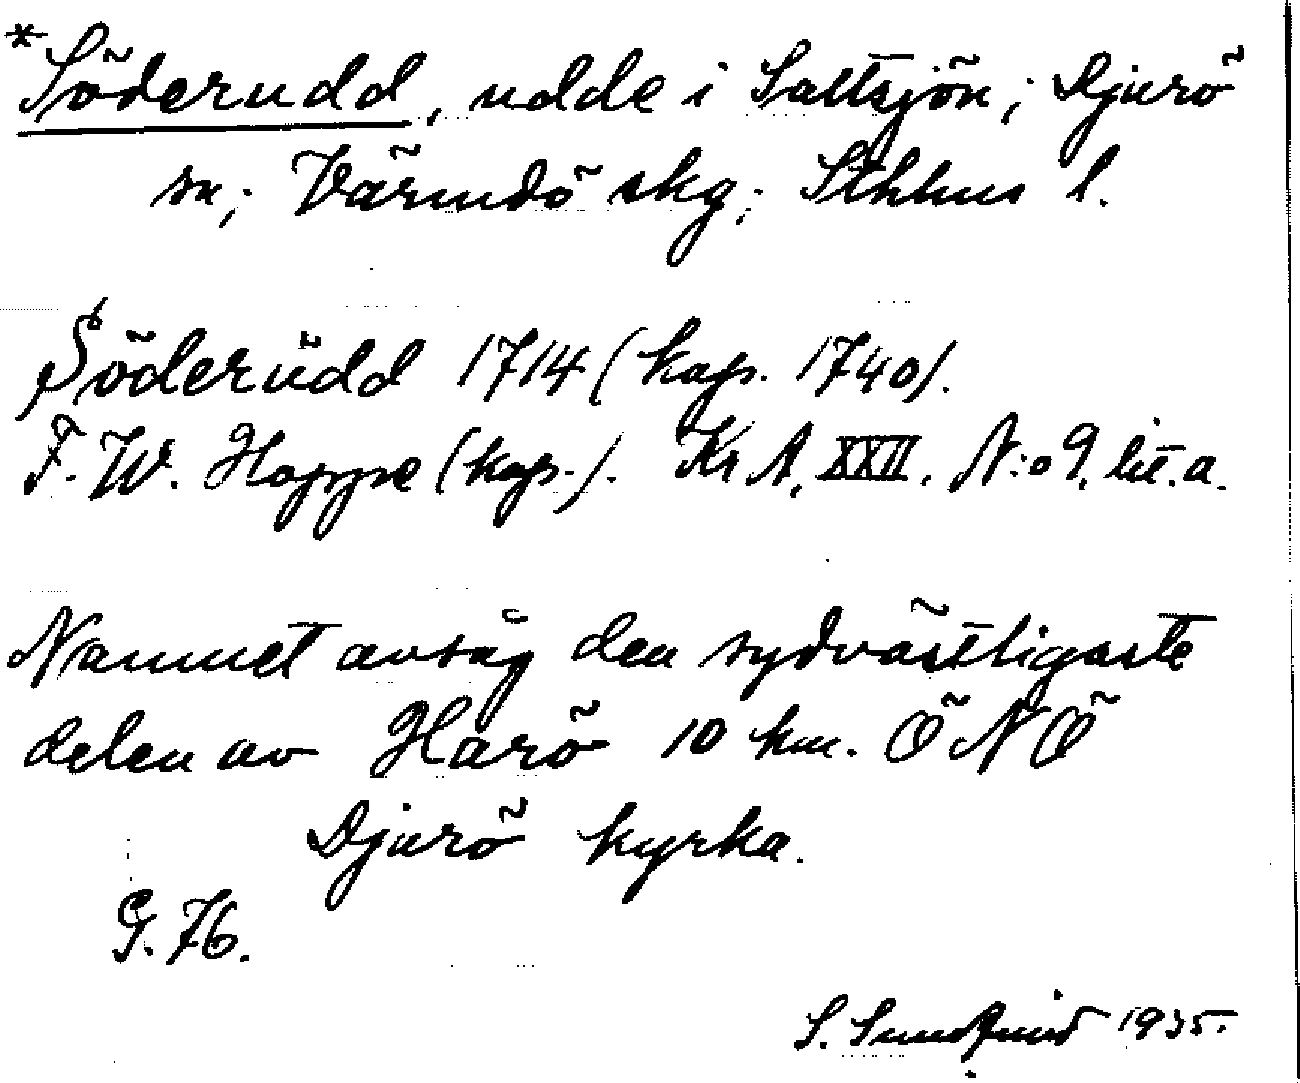 *Söderudd, udde i Saltsjön; Djurö
sn; Värmdö skg; Sthlms l.
Söderüdd 1714 (kop. 1740).
F. W. Hoppe (kop.). Kr A, XXII. N:o 9, lit. a.
Namnet avsåg den sydvästligaste
delen av Harö 10 km. ÖNÖ
Djurö kyrka.
G. 76.
S. Sundqvist 1935.